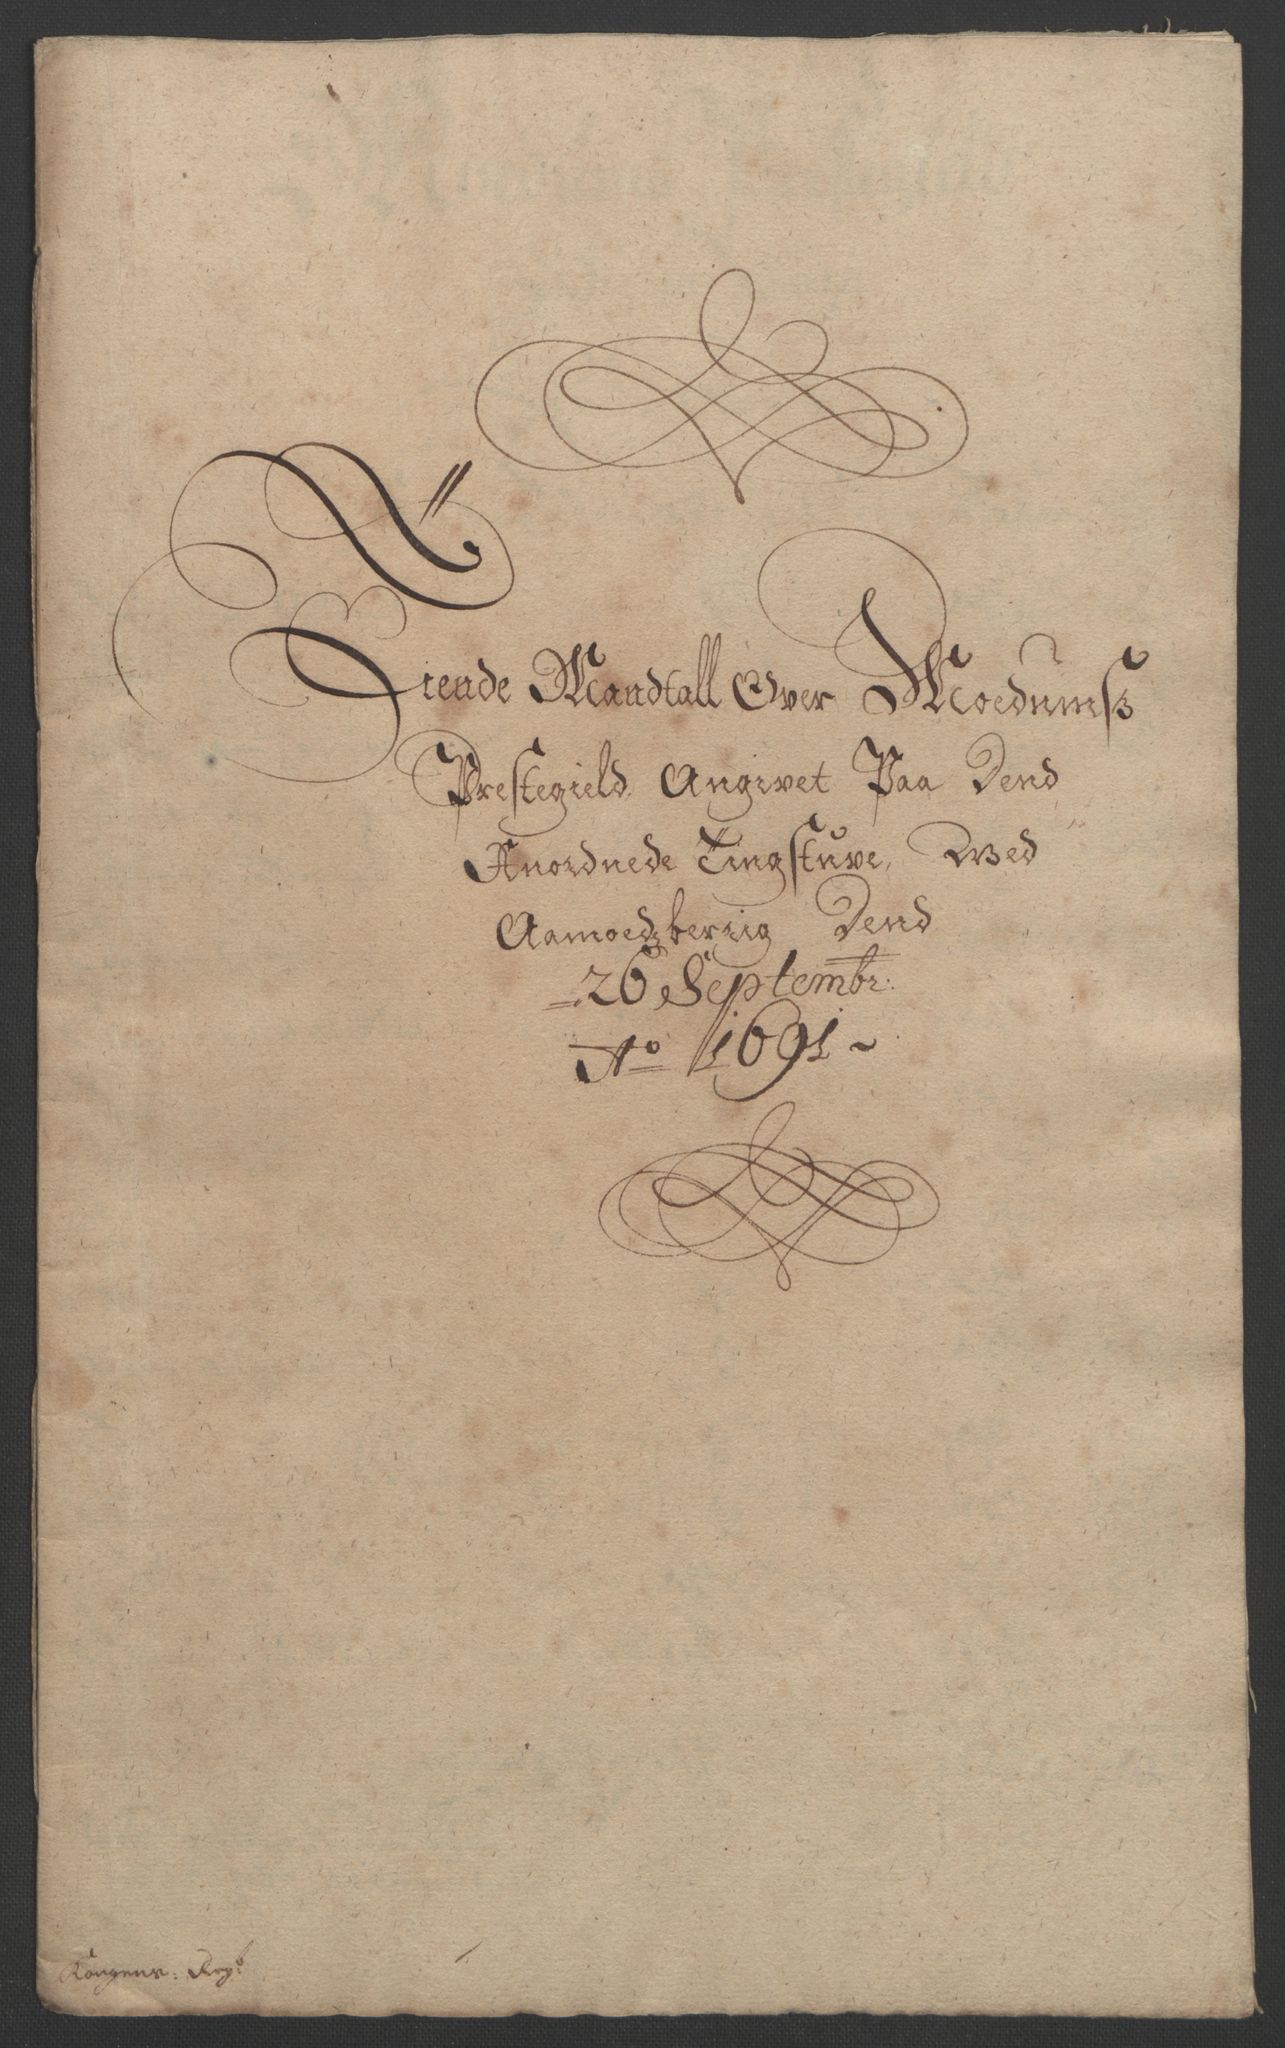 Tiende Mandtall Over Moedumsß
Prestegield Angivet Paa Dend
Anordnede Tingstuve, Wed
Aamoedzberrig Dend
26 Septembr:
Ao 1691
Kongens: Regb: